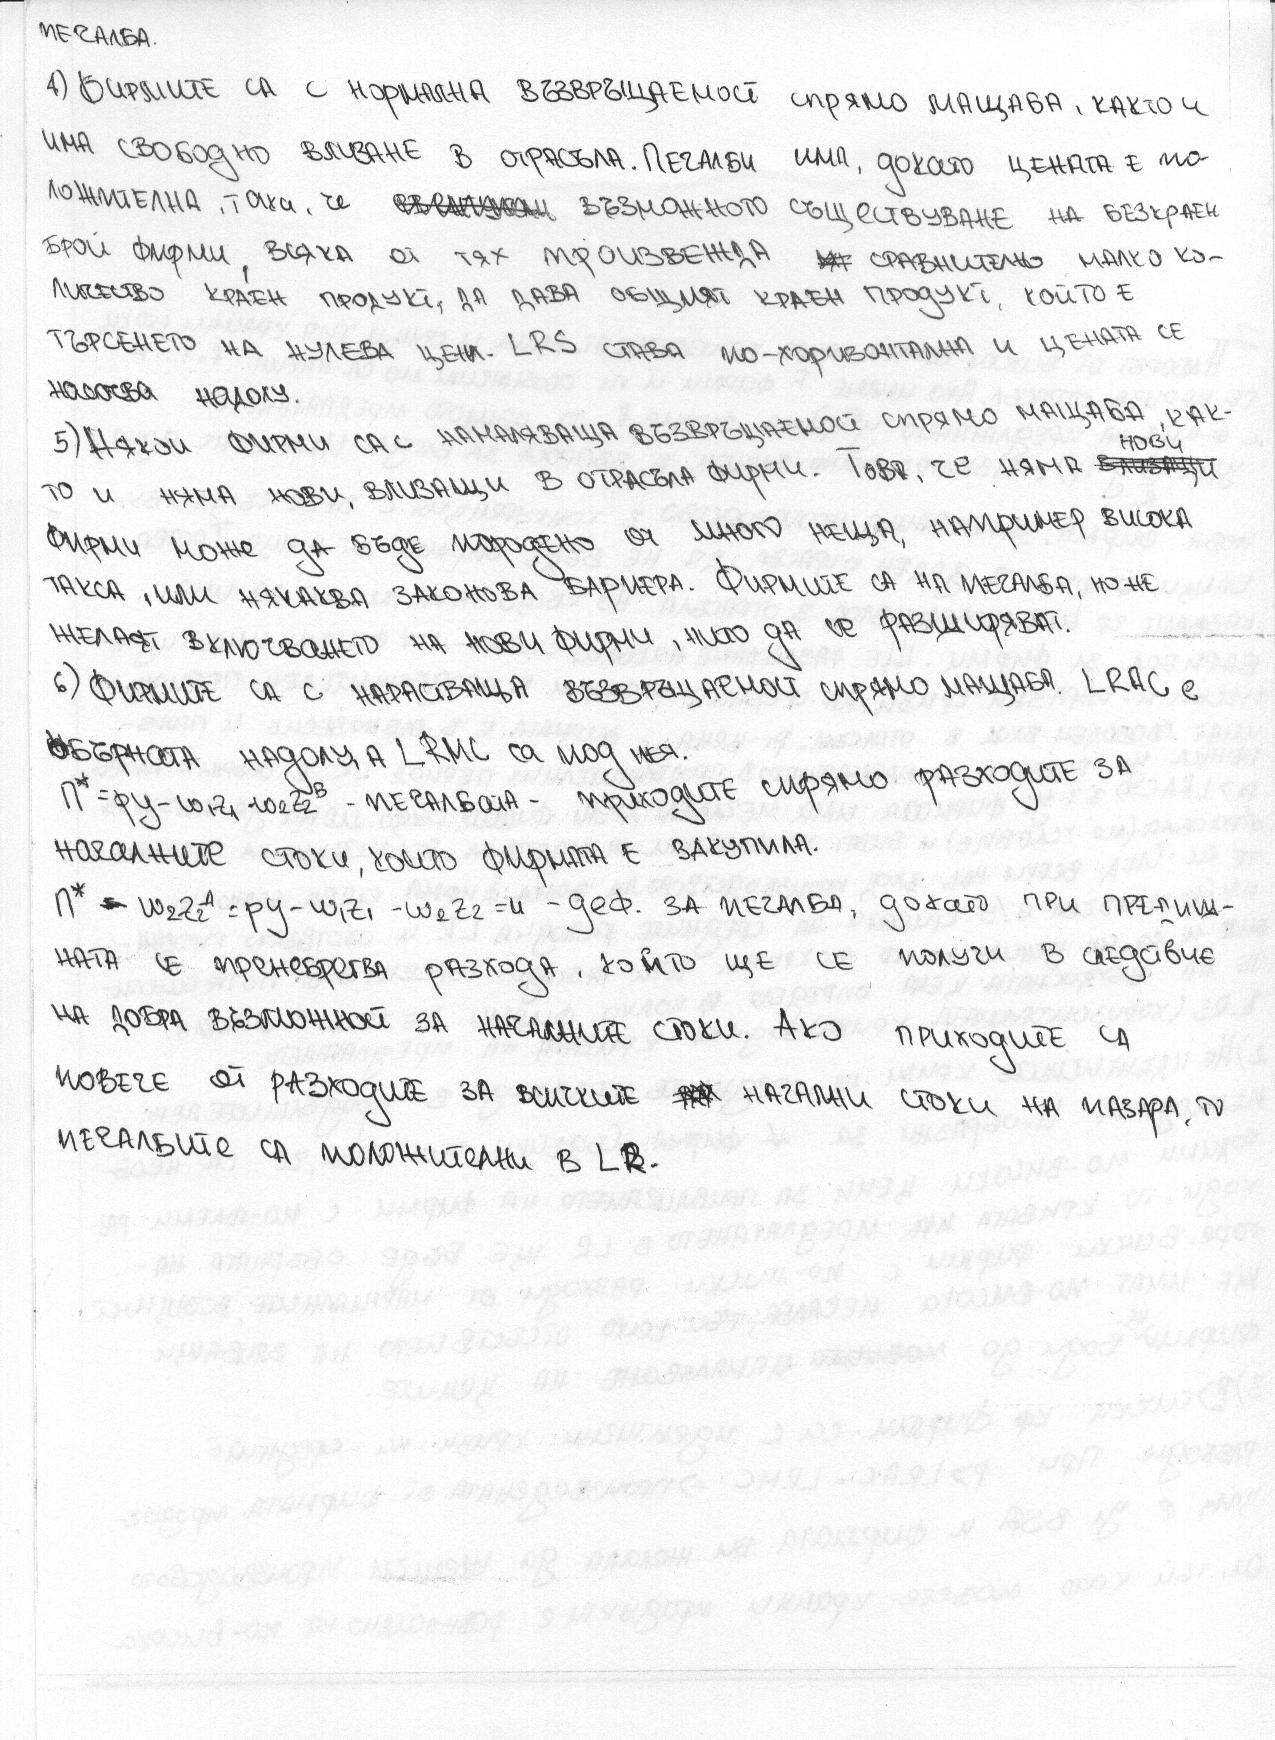 ПЕЧАЛБА.
4) ФИРМИТЕ СА С НОРМАЛНА ВЪЗВРЪЩАЕМОСТ СПРЯМО МАЩАБА, КАКТО И
ИМА СВОБОДНО ВЛИЗАНЕ В ОТРАСЪЛА. ПЕЧАЛБИ ИМА, ДОКАТО ЦЕНАТА Е ПО-
ЛОЖИТЕЛНА, ТАКА, ЧЕ ВЪЗМОЖНОТО СЪЩЕСТВУВАНЕ НА БЕЗКРАЕН
БРОЙ ФИРМИ, ВСЯКА ОТ ТЯХ ПРОИЗВЕЖДА СРАВНИТЕЛНО МАЛКО КО-
ЛИЧЕСТВО КРАЕН ПРОДУКТ, ДА ДАВА ОБЩИЯТ КРАЕН ПРОДУКТ, КОЙТО Е
ТЪРСЕНЕТО НА НУЛЕВА ЦЕНА. LRS СТАВА ПО-ХОРИЗОНТАЛНА И ЦЕНАТА СЕ
НАСОЧВА НАДОЛУ.
5) НЯКОИ ФИРМИ СА С НАМАЛЯВАЩА ВЪЗВРЪЩАЕМОСТ СПРЯМО МАЩАБА, КАК-
ТО И НЯМА НОВИ, ВЛИЗАЩИ В ОТРАСЪЛА ФИРМИ. ТОВА, ЧЕ НЯМА НОВИ
ФИРМИ МОЖЕ ДА БЪДЕ ПОРОДЕНО ОТ МНОГО НЕЩА, НАПРИМЕР ВИСОКА
ТАКСА, ИЛИ НЯКАКВА ЗАКОНОВА БАРИЕРА. ФИРМИТЕ СА НА ПЕЧАЛБА, НО НЕ
ЖЕЛАЯТ ВКЛЮЧВАНЕТО НА НОВИ ФИРМИ, НИТО ДА СЕ РАЗШИРЯВАТ.
6) ФИРМИТЕ СА С НАРАСТВАЩА ВЪЗВРЪЩАЕМОСТ СПРЯМО МАЩАБА. LRAC е
ОБЪРНАТА НАДОЛУ, А LRMC СА ПОД НЕЯ.
П* = py - w₁z₁ - w₂z₂ᴮ - ПЕЧАЛБАТА - ПРИХОДИТЕ СПРЯМО РАЗХОДИТЕ ЗА
НАЧАЛНИТЕ СТОКИ, КОИТО ФИРМАТА Е ЗАКУПИЛА.
П* - w₂z₂ᴬ = py - w₁z₁ - w₂z₂ = и - ДЕФ. ЗА ПЕЧАЛБА, ДОКАТО ПРИ ПРЕДИШ-
НАТА СЕ ПРЕНЕБРЕГВА РАЗХОДА, КОЙТО ЩЕ СЕ ПОЛУЧИ В СЛЕДСТВИЕ
НА ДОБРА ВЪЗМОЖНОСТ ЗА НАЧАЛНИТЕ СТОКИ. АКО ПРИХОДИТЕ СА
ПОВЕЧЕ ОТ РАЗХОДИТЕ ЗА ВСИЧКИТЕ НАЧАЛНИ СТОКИ НА ПАЗАРА, ТО
ПЕЧАЛБИТЕ СА ПОЛОЖИТЕЛНИ В LR.